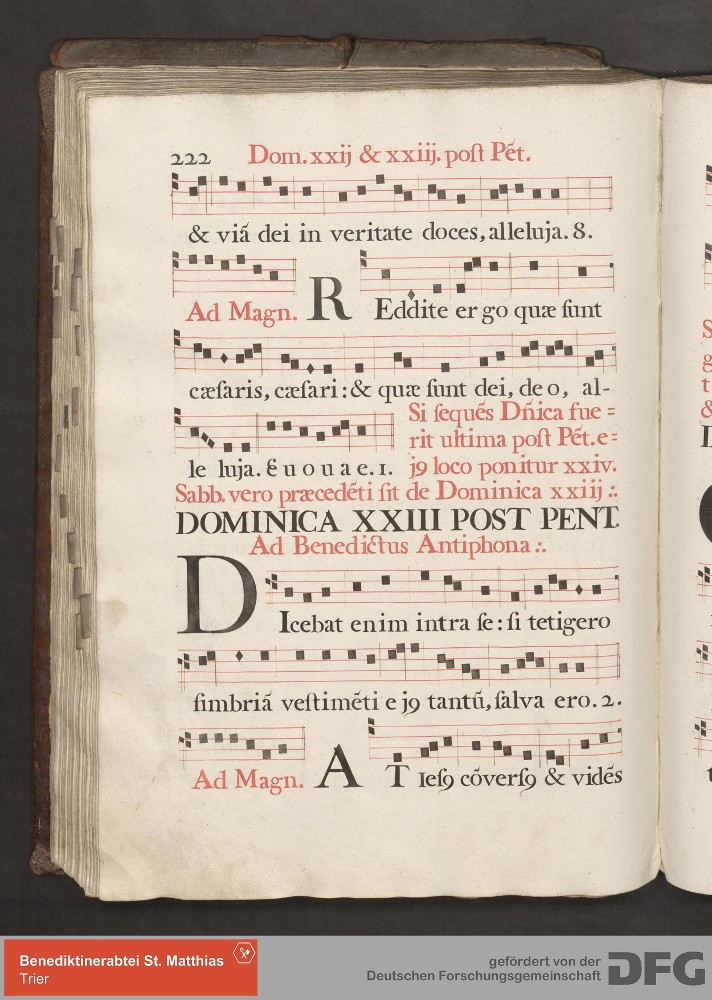 222 Dom. xxij & xxiij. poſt Pẽt.
& viã dei in veritate doces, alleluja. 8.
Ad Magn. REddite ergo quæ ſunt
cæſaris, cæſari: & quæ ſunt dei, deo, al-
le luja. e u o u a e. 1.
Si ſequẽs Dñica fue=
rit ultima poſt Pẽt. e=
jꝯ loco ponitur xxiv.
Sabb. vero præcedẽti fit de Dominica xxiij ∴
DOMINICA XXIII POST PENT.
Ad Benedictus Antiphona ∴
DIcebat enim intra ſe: ſi tetigero
fimbriã veſtimẽti ejꝯ tantũ, ſalva ero. 2.
Ad Magn. AT Ieſꝯ cõverſꝯ & vidẽs
Benediktinerabtei St. Matthias
Trier
gefördert von der
Deutschen Forschungsgemeinschaft DFG